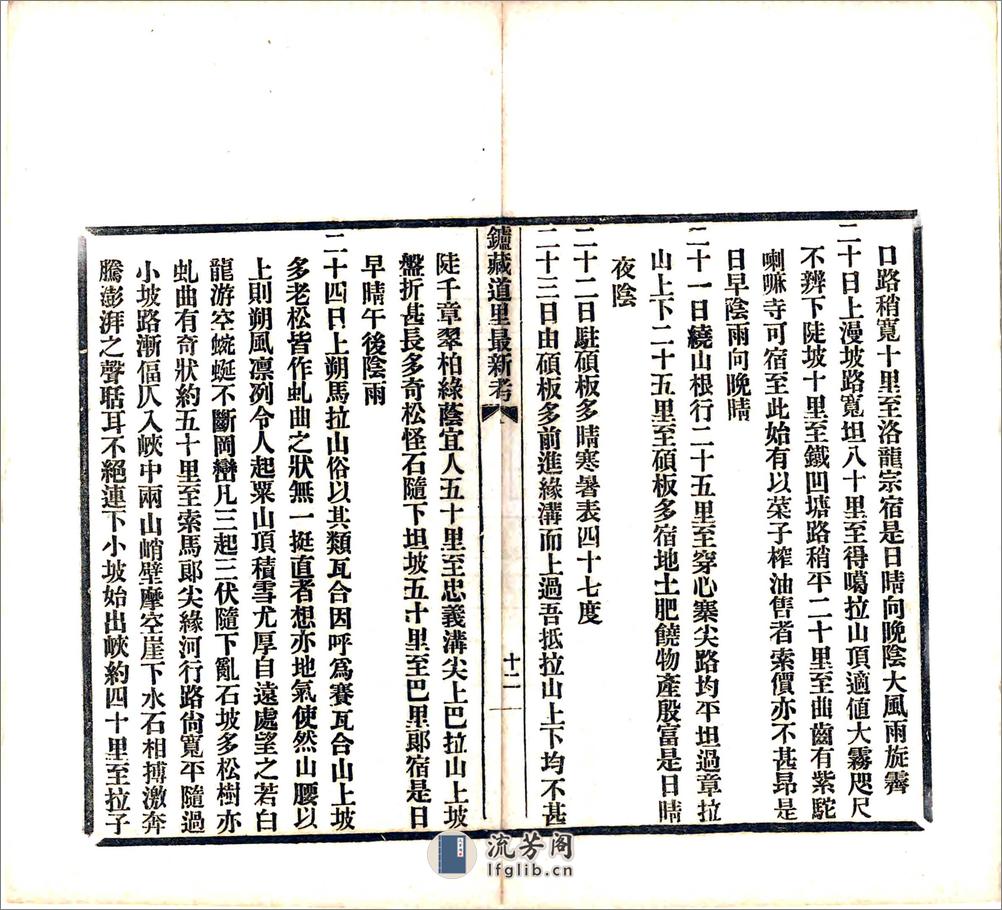 口路稍寬十里至洛龍宗宿是日晴向晚陰大風雨旋霽
二十日上漫坡路寬坦八十里至得噶拉山頂適値大霧咫尺
不辨下陡坡十里至鐵凹塘路稍平二十里至曲齒有紫駝
喇嘛寺可宿至此始有以菜子榨油售者索價亦不甚昂是
日早陰雨向晚晴
二十一日繞山根行二十五里至穿心寨尖路均平坦過章拉
山上下二十五里至碩板多宿地土肥饒物產殷富是日晴
夜陰
二十二日駐碩板多晴寒暑表四十七度
二十三日由碩板多前進緣溝而上過吾抵拉山上下均不甚
鑪藏道里最新考
十二
陡千章翠柏綠蔭宜人五十里至忠義溝尖上巴拉山上坡
盤折甚長多奇松怪石隨下坦坡五十里至巴里郞宿是日
早晴午後陰雨
二十四日上朔馬拉山俗以其類瓦合因呼爲賽瓦合山上坡
多老松皆作虬曲之狀無一挺直者想亦地氣使然山腰以
上則朔風凛列令人起粟山頂積雪尤厚自遠處望之若白
龍游空蜿蜒不斷岡巒凡三起三伏隨下亂石坡多松樹亦
虬曲有奇狀約五十里至索馬郞尖緣河行路尙寬平隨過
小坡路漸偪仄入峽中兩山峭壁摩空崖下水石相搏激奔
騰澎湃之聲聒耳不絕連下小坡始出峽約四十里至拉子
流芳阁
lfglib.cn